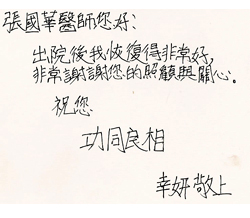 張國華醫師您好：
出院後我恢復得非常好，
非常謝謝您的照顧與關心。
祝您
功同良相
幸妍敬上